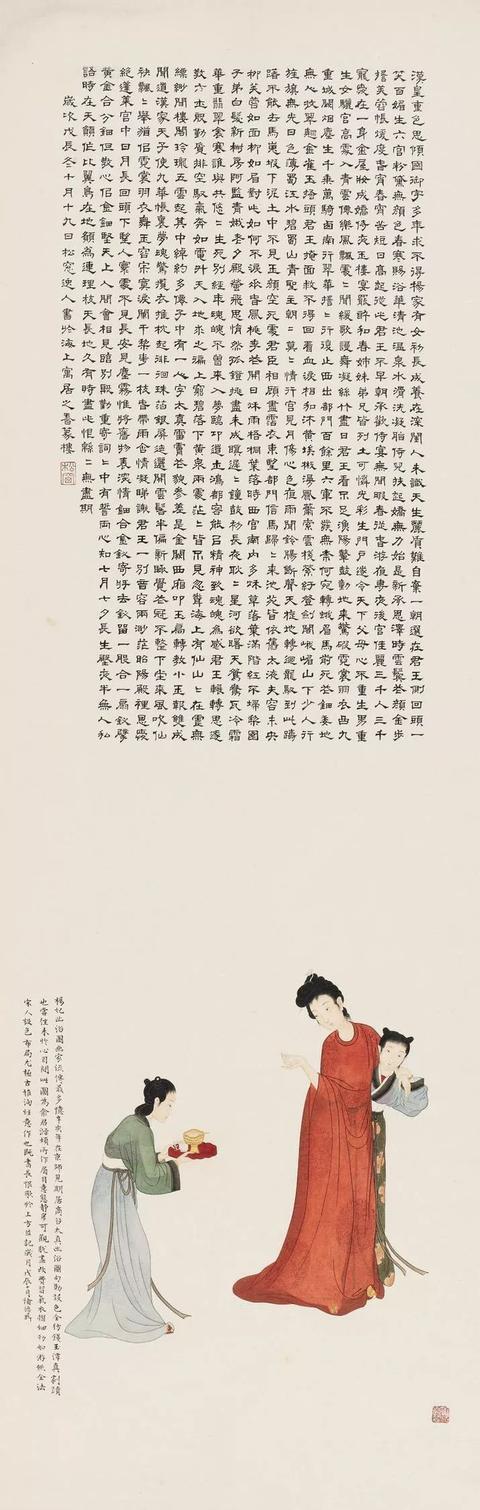 漢皇重色思傾國御宇多年求不得楊家有女初長成養在深閨人未識天生麗質難自棄一朝選在君王側回頭一
笑百媚生六宮粉黛無顏色春寒賜浴華清池溫泉水滑洗凝脂侍兒扶起嬌無力始是新承恩澤時雲鬢花顏金步
搖芙蓉帳暖度春宵春宵苦短日高起從此君王不早朝承歡侍宴無閒暇春從春遊夜專夜後宮佳麗三千人三千
寵愛在一身金屋妝成嬌侍夜玉樓宴罷醉和春姊妹弟兄皆列土可憐光彩生門戶遂令天下父母心不重生男重
生女驪宮高處入青雲仙樂風飄處〻聞緩歌謾舞凝絲竹盡日君王看不足漁陽鼙鼓動地來驚破霓裳羽衣曲九
重城闕煙塵生千乘萬騎西南行翠華搖〻行復止西出都門百餘里六軍不發無奈何宛轉蛾眉馬前死花鈿委地
無人收翠翹金雀玉搔頭君王掩面救不得回看血淚相和流黃埃散漫風蕭索雲棧縈紆登劍閣峨嵋山下少人行
旌旗無光日色薄蜀江水碧蜀山青聖主朝〻暮〻情行宮見月傷心色夜雨聞鈴腸斷聲天旋地轉迴龍馭到此躊
躇不能去馬嵬坡下泥土中不見玉顏空死處君臣相顧盡霑衣東望都門信馬歸〻來池苑皆依舊太液芙蓉未央
柳芙蓉如面柳如眉對此如何不淚垂春風桃李花開日秋雨梧桐葉落時西宮南內多秋草落葉滿階紅不掃梨園
子弟白髮新椒房阿監青娥老夕殿螢飛思悄然孤燈挑盡未成眠遲〻鐘鼓初長夜耿〻星河欲曙天鴛鴦瓦冷霜
華重翡翠衾寒誰與共悠〻生死別經年魂魄不曾來入夢臨邛道士鴻都客能以精神致魂魄為感君王輾轉思遂
教方士殷勤覓排空馭氣奔如電升天入地求之遍上窮碧落下黃泉兩處茫〻皆不見忽聞海上有仙山〻在虛無
縹緲間樓閣玲瓏五雲起其中綽約多仙子中有一人字太真雪膚花貌參差是金闕西廂叩玉扃轉教小玉報雙成
聞道漢家天子使九華帳裏夢魂驚攬衣推枕起徘徊珠箔銀屏迤邐開雲鬢半偏新睡覺花冠不整下堂來風吹仙
袂飄〻舉猶似霓裳羽衣舞玉容寂寞淚闌干梨花一枝春帶雨含情凝睇謝君王一別音容兩渺茫昭陽殿裡恩愛
絕蓬萊宮中日月長回頭下望人寰處不見長安見塵霧惟將舊物表深情鈿合金釵寄將去釵留一股合一扇釵擘
黃金合分鈿但教心似金鈿堅天上人間會相見臨別殷勤重寄詞〻中有誓兩心知七月七夕長生殿夜半無人私
語時在天願作比翼鳥在地願為連理枝天長地久有時盡此恨綿〻無盡期
歲次戊辰冬十月十九日松窗逸人書於海上寓居之香篆樓
楊妃出浴圖畫家流傳最多憶辛亥年在京師見周居高台太真出浴圖勾勒設色全仿錢玉潭真刻蹟
也當往來於心目間此圖為余居諳頓所作眉目意態靜穆可觀脫盡改費習氣衣褶細勁如游絲全法
宋人設色布局尤極古雅洵經意作也既書長恨歌於上方並記歲月戊辰十月